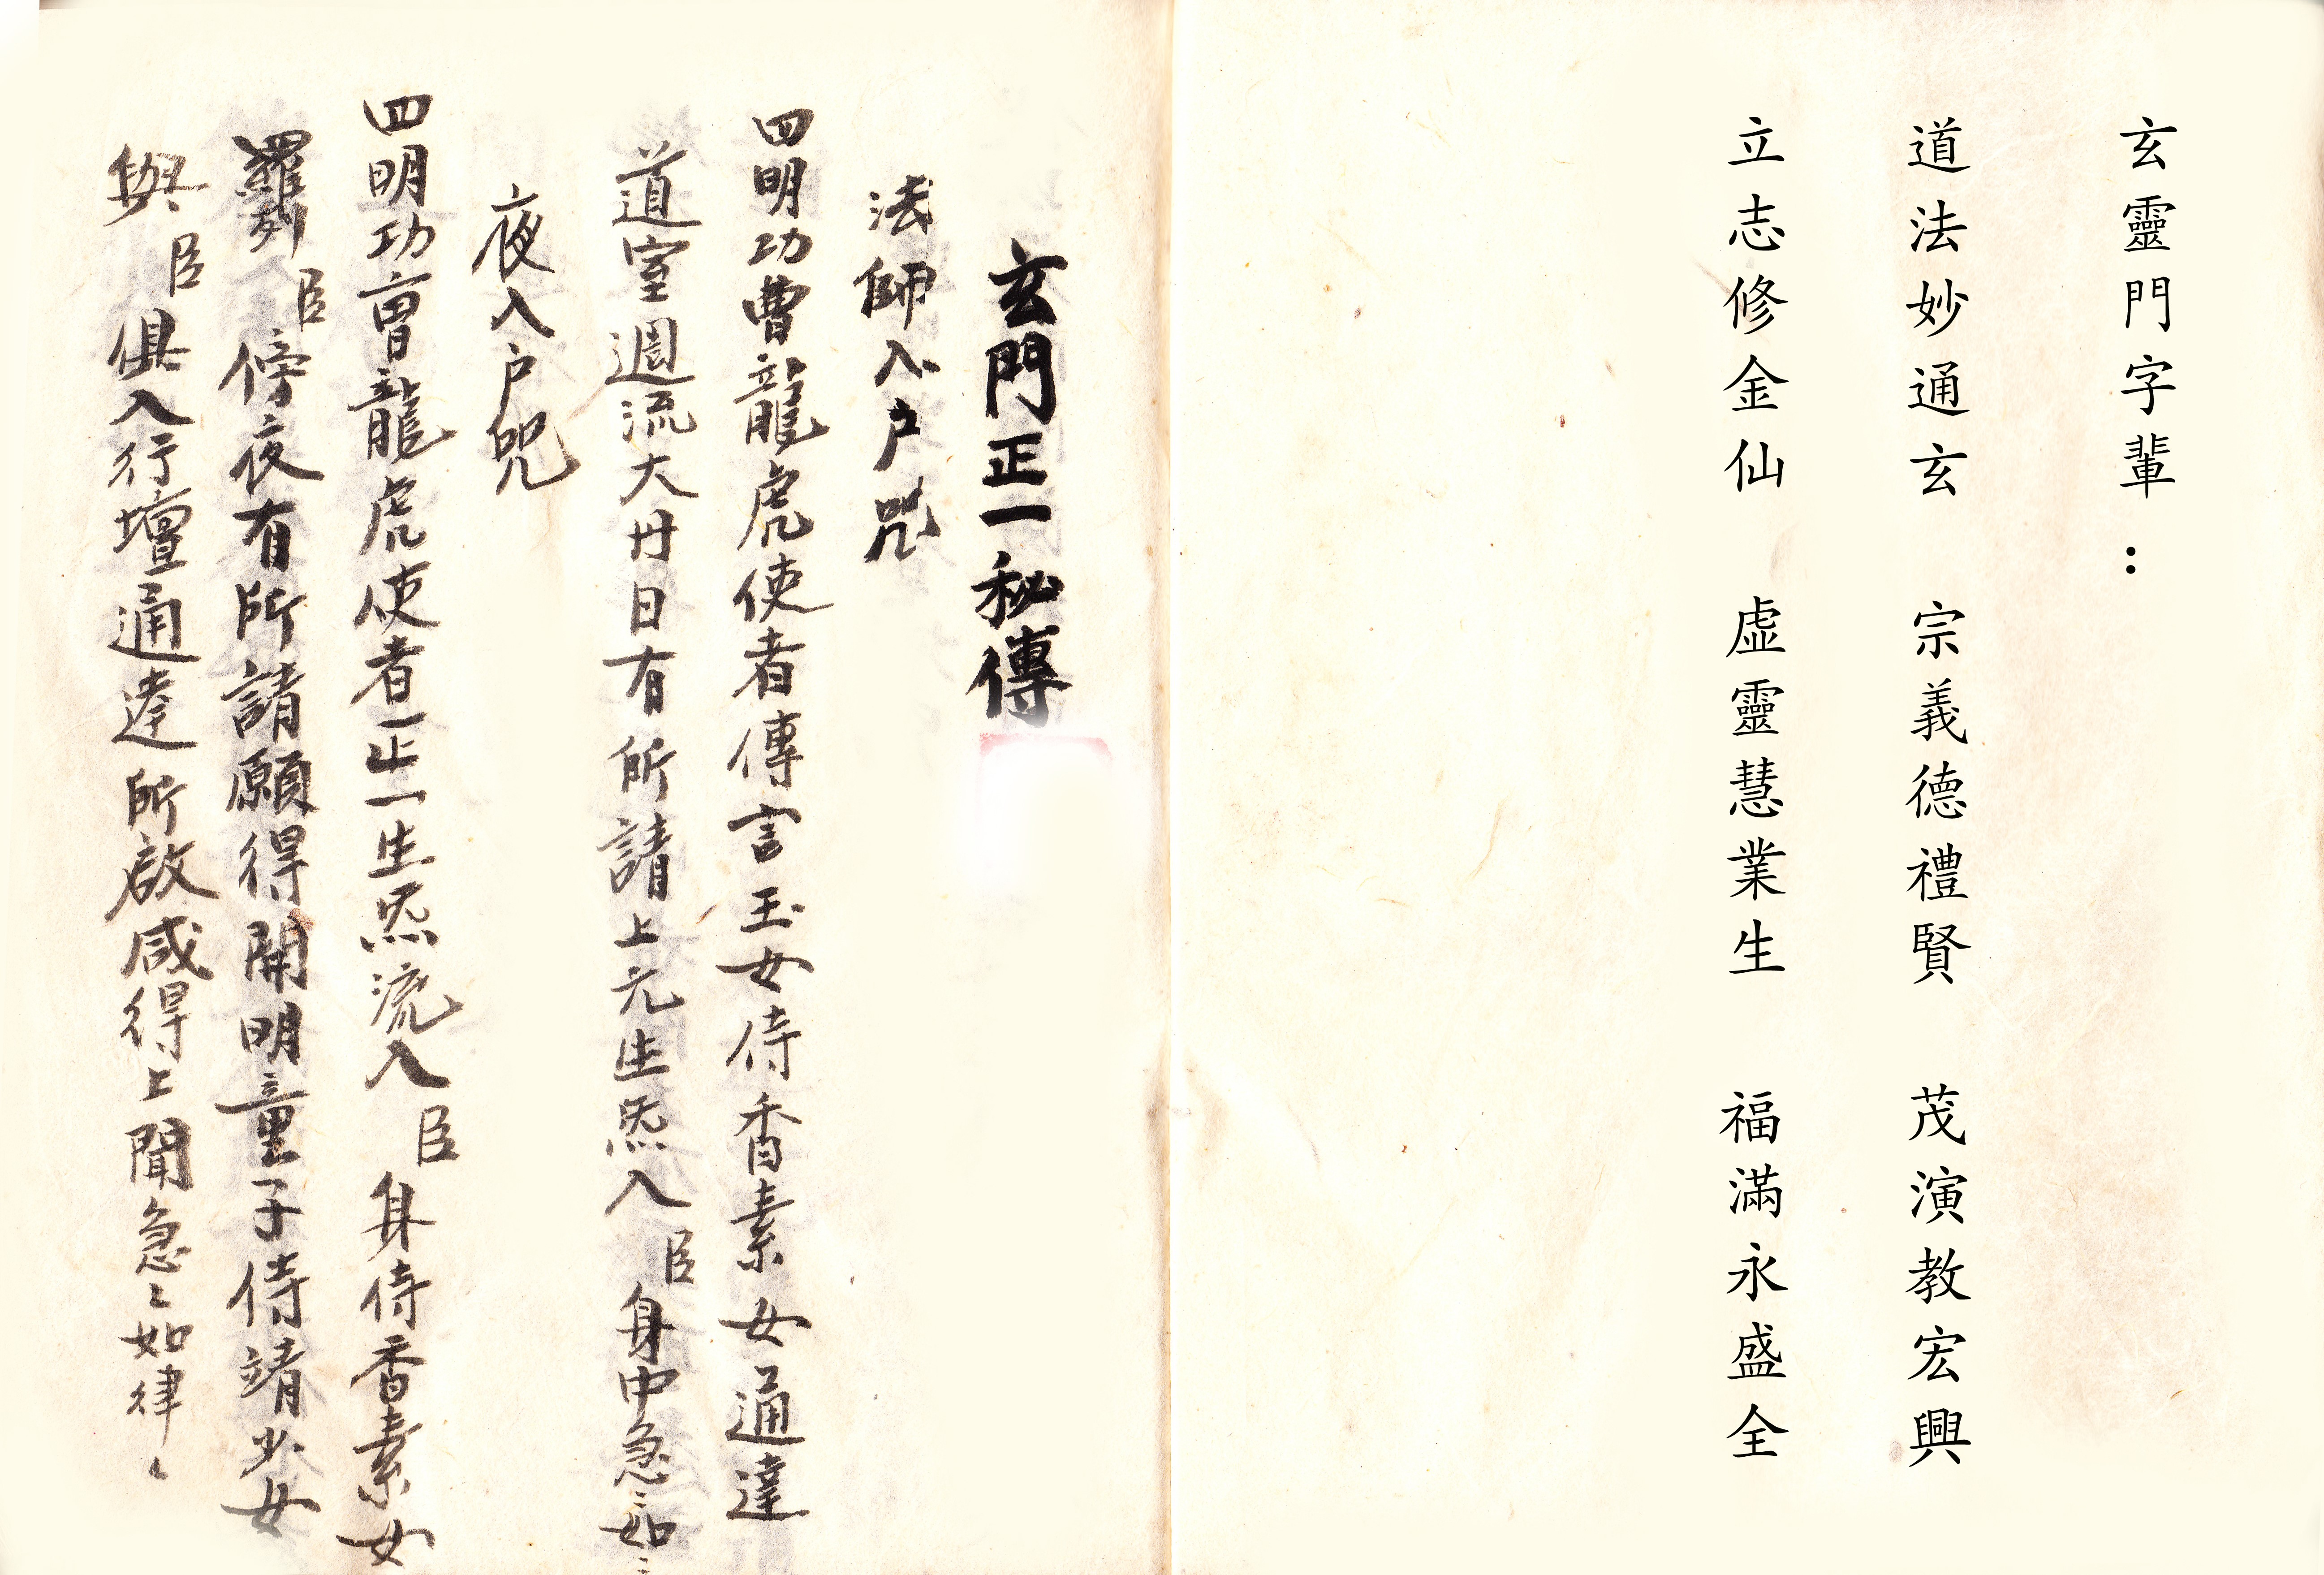 玄靈門字輩：
道法妙通玄　宗義德禮賢　茂演教宏興
立志修金仙　虛靈慧業生　福滿永盛全
玄門正一秘傳
法師入户咒
四明功曹龍虎使者傳言玉女侍香素女通達
道室週流大卄日有所請上元生炁入臣身中急〻如〻
夜入户咒
四明功曹龍虎使者正一生炁流入臣身侍香素女
羅列臣傍夜有所請願得開明童子侍靖少女
與臣俱入行壇通達所啟咸得上聞急〻如律〻